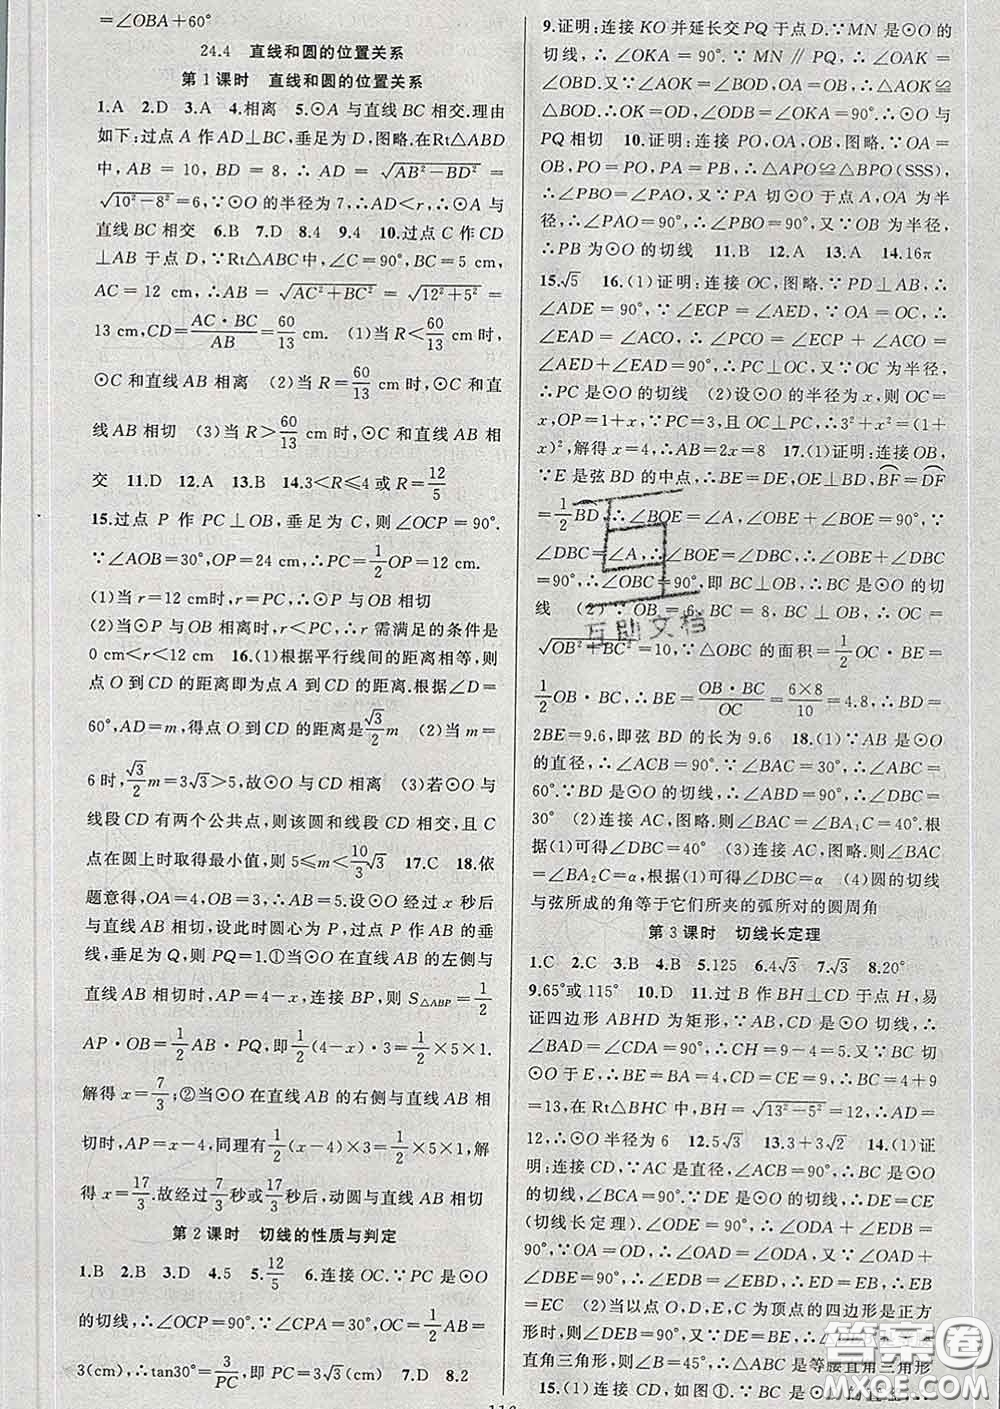 =∠OBA+60°
24.4 直线和圆的位置关系
第1课时 直线和圆的位置关系
1.A 2.D 3.A 4.相离 5.⊙A与直线BC相交.理由
如下:过点A作AD⊥BC,垂足为D,图略.在Rt△ABD
中,AB=10,BD=8,∴AD=√(AB²-BD²)=
√(10²-8²)=6,∵⊙O的半径为7,∴AD<r,∴⊙A与
直线BC相交 6.B 7.D 8.4 9.4 10.过点C作CD
⊥AB于点D.∵Rt△ABC中,∠C=90°,BC=5 cm,
AC=12 cm,∴AB=√(AC²+BC²)=√(12²+5²)=
13 cm,CD=AC·BC/AB=60/13 cm. (1)当R<60/13 cm时,
⊙C和直线AB相离 (2)当R=60/13 cm时,⊙C和直
线AB相切 (3)当R>60/13 cm时,⊙C和直线AB相
交 11.D 12.A 13.B 14.3<R≤4或R=12/5
15.过点P作PC⊥OB,垂足为C,则∠OCP=90°.
∵∠AOB=30°,OP=24 cm,∴PC=1/2OP=12 cm.
(1)当r=12 cm时,r=PC,∴⊙P与OB相切
(2)当⊙P与OB相离时,r<PC,∴r需满足的条件是
0 cm<r<12 cm 16.(1)根据平行线间的距离相等,则
点O到CD的距离即为点A到CD的距离.根据∠D=
60°,AD=m,得点O到CD的距离是√3/2m (2)当m=
6时,√3/2m=3√3>5,故⊙O与CD相离 (3)若⊙O与
线段CD有两个公共点,则该圆和线段CD相交,且C
点在圆上时取得最小值,则5≤m<10/3√3 17.C 18.依
题意得,OA=4,OB=3,∴AB=5.设⊙O经过x秒后
与直线AB相切,设此时圆心为P,过点P作AB的垂
线,垂足为Q,则PQ=1.①当⊙O在直线AB的左侧与
直线AB相切时,AP=4-x,连接BP,则S△ABP=1/2
AP·OB=1/2AB·PQ,即1/2(4-x)·3=1/2×5×1.
解得x=7/3;②当⊙O在直线AB的右侧与直线AB相
切时,AP=x-4,同理有1/2(x-4)×3=1/2×5×1,解
得x=17/3.故经过7/3秒或17/3秒后,动圆与直线AB相切
第2课时 切线的性质与判定
1.B 2.B 3.D 4.5 5.12/5 6.连接OC.∵PC是⊙O
的切线,∴∠OCP=90°.∵∠CPA=30°,OC=1/2AB=
3(cm),∴tan30°=3/PC,即PC=3√3(cm) 7.D 8.2
9.证明:连接KO并延长交PQ于点D.∵MN是⊙O
的切线,∴∠OKA=90°.∵MN∥PQ,∴∠OAK=
∠OBD.又∵∠AOK=∠BOD,OA=OB,∴△AOK≌
△BOD.∴OK=OD,∠ODB=∠OKA=90°.∴⊙O与
PQ相切 10.证明:连接PO,OA,OB,图略.∵OA=
OB,PO=PO,PA=PB,∴△APO≌△BPO(SSS),
∴∠PBO=∠PAO,又∵PA切⊙O于点A,OA为半
径,∴∠PAO=90°,∴∠PBO=90°,又∵OB为半径,
∴PB为⊙O的切线 11.B 12.A 13.A 14.16π
15.√5 16.(1)证明:连接OC,图略.∵PD⊥AB,∴
∠ADE=90°,∵∠ECP=∠AED,又∵OA=OC,∴
∠EAD=∠ACO,∴∠PCO=∠ECP+∠ACO=
∠AED+∠EAD=90°,∴PC⊥OC,∵OC为半径,
∴PC是⊙O的切线 (2)设⊙O的半径为x,则OC=
x,OP=1+x,∵PC=3,且OC⊥PC,∴3²+x²=(1+
x)²,解得x=4,∴AB=2x=8 17.(1)证明:连接OB,
∵E是弦BD的中点,∴BE=DE,OE⊥BD,BF=DF
=1/2BD,∴∠BOE=∠A,∠OBE+∠BOE=90°,∵
∠DBC=∠A,∴∠BOE=∠DBC,∴∠OBE+∠DBC
=90°,∴∠OBC=90°,即BC⊥OB,∴BC是⊙O的切
线 (2)∵OB=6,BC=8,BC⊥OB,∴OC=
√(OB²+BC²)=10,∵△OBC的面积=1/2OC·BE=
1/2OB·BC,∴BE=OB·BC/OC=6×8/10=4.8,∴BD=
2BE=9.6,即弦BD的长为9.6 18.(1)∵AB是⊙O
的直径,∴∠ACB=90°.∵∠BAC=30°,∴∠ABC=
60°.∵BD是⊙O的切线,∴∠ABD=90°,∴∠DBC=
30° (2)连接AC,图略.∠BAC=∠BA₁C=40°,
根据(1)可得∠DBC=40° (3)连接AC,图略.∠BAC
=∠BA₂C=α,根据(1)可得∠DBC=α (4)圆的切线
与弦所成的角等于它们所夹的弧所对的圆周角
第3课时 切线长定理
1.C 2.C 3.B 4.B 5.125 6.4√3 7.√3 8.20°
9.65°或115° 10.D 11.过B作BH⊥CD于点H,易
证四边形ABHD为矩形,∵AB,CD是⊙O切线,∴
∠BAD=∠CDA=90°,∴CH=9-4=5.又∵BC切
⊙O于E,∴BE=BA=4,CD=CE=9,∴BC=4+9
=13,在Rt△BHC中,BH=√(13²-5²)=12,∴AD=
12,∴⊙O半径为6 12.5√3 13.3+3√2 14.(1)证
明:连接CD,∵AC是直径,∠ACB=90°,∴BC是⊙O
的切线,∠BCA=90°.∵DE是⊙O的切线,∴DE=CE
(切线长定理).∠ODE=90°,∴∠ODA+∠EDB=
90°,∵OA=OD,∴∠OAD=∠ODA,又∵∠OAD+
∠DBE=90°,∴∠EDB=∠EBD,∴DE=EB,∴EB
=EC (2)当以点O,D,E,C为顶点的四边形是正方
形时,则∠DEB=90°,又∵DE=BE,∴△DEB是等腰
直角三角形,则∠B=45°,∴△ABC是等腰直角三角形
15.(1)连接CD,如图①.∵
互助文档
答案圈